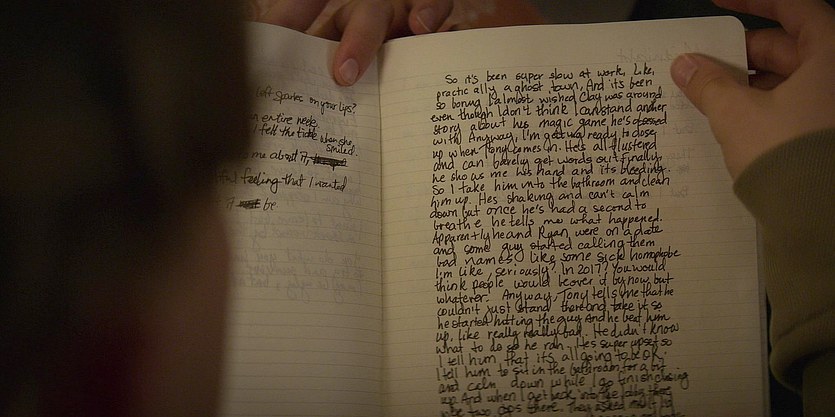 left sparks on your lips?
an entire week,
I felt the tickle when she
smiled.
me about it,
feeling that I wanted
be
So it's been super slow at work. Like,
practically a ghost town. And it's been
so boring I almost wished Clay was around
even though I don't think I can stand another
story about his magic game he's obsessed
with. Anyway, I'm getting ready to close
up when Tony comes in. He's all flustered
and can barely get words out. Finally,
he shows me his hand and its bleeding.
So I take him into the bathroom and clean
him up. Hes shaking and can't calm
down but once he's had a second to
breathe he tells me what happened.
Apparently he and Ryan were on a date
and some guy started calling them
bad names, like some sick homophobe
I'm like, seriously? In 2017? You would
think people would be over it by now but
whatever. Anyway, Tony tells me that he
couldn't just stand there and take it so
he started hitting the guy. And he beat him
up, like really really bad. He didn't know
what to do so he ran. Hes super upset so
I tell him that it's all going to be ok.
I tell him to sit in the bathroom for a bit
and calm down while I go finish closing
up. And when I get back into the lobby there
were two cops there. They asked me if I'd